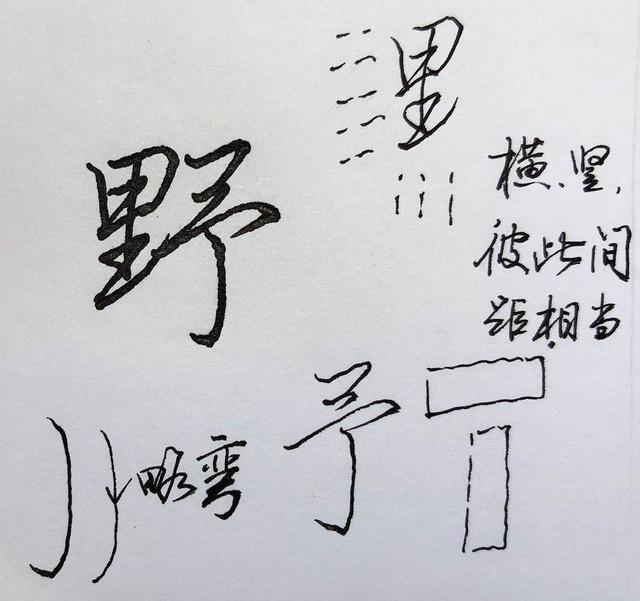 野
里
横、竖,
彼此间
距相当
略弯
予